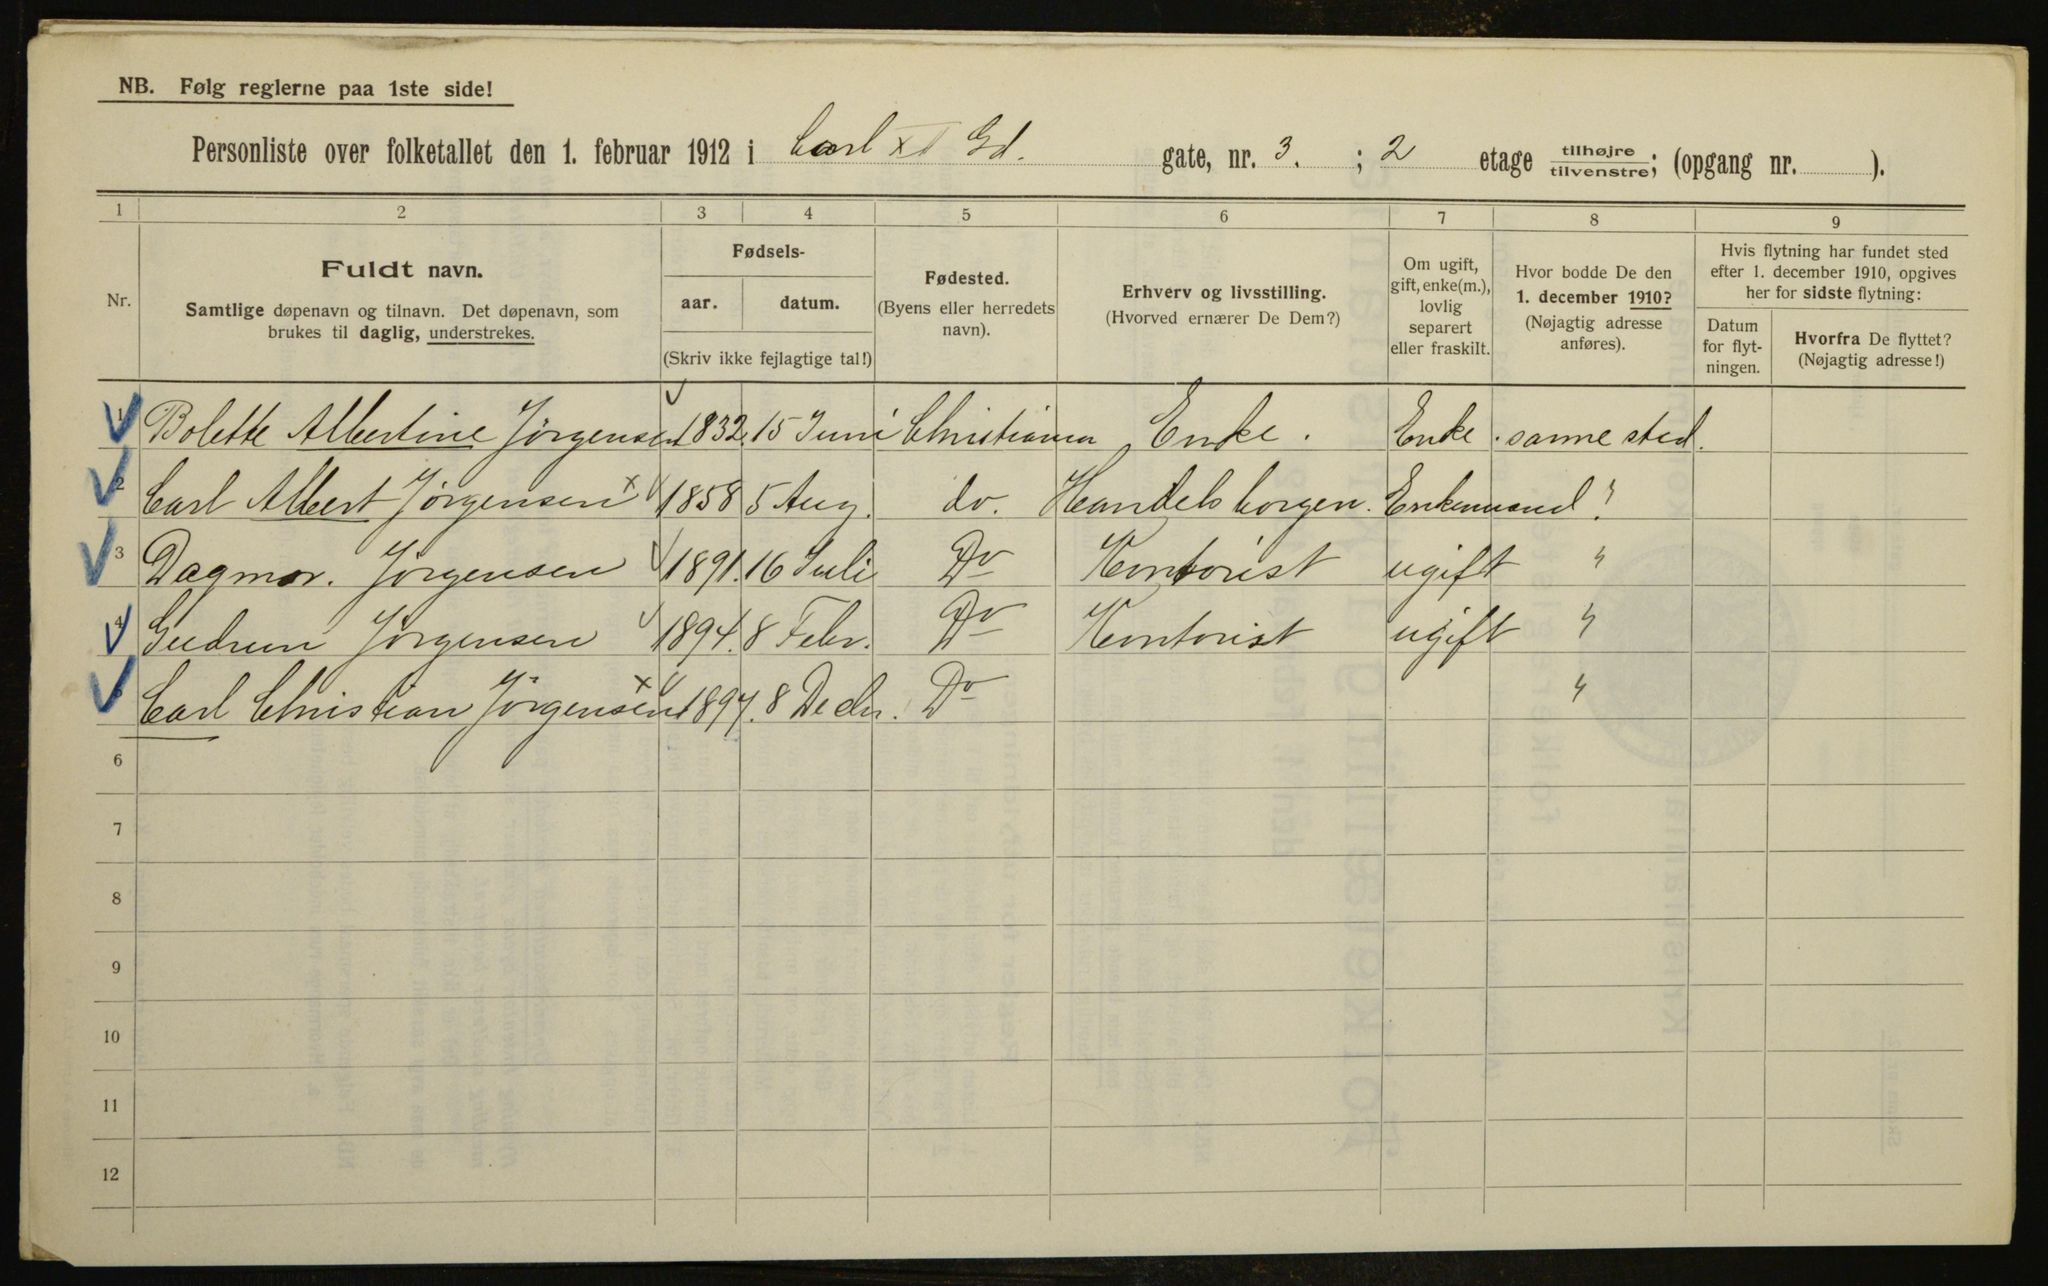 NB. Følg reglerne paa 1ste side!
Personliste over folketallet den 1. februar 1912 i Carl XII Gd. gate, nr. 3. ; 2 etage tilhøjre/tilvenstre; (opgang nr. ).
1 2 3 4 5 6 7 8 9
Nr.
Fuldt navn.
Samtlige døpenavn og tilnavn. Det døpenavn, som
brukes til daglig, understrekes.
Fødsels-
aar. datum.
(Skriv ikke fejlagtige tal!)
Fødested.
(Byens eller herredets
navn).
Erhverv og livsstilling.
(Hvorved ernærer De Dem?)
Om ugift,
gift, enke(m.),
lovlig
separert
eller fraskilt.
Hvor bodde De den
1. december 1910?
(Nøjagtig adresse
anføres).
Hvis flytning har fundet sted
efter 1. december 1910, opgives
her for sidste flytning:
Datum
for flyt-
ningen.
Hvorfra De flyttet?
(Nøjagtig adresse!)
1 Bolette Albertine Jørgensen 1832 15 Juni Christiania Enke. Enke. samme sted.
2 Carl Albert Jørgensen x 1858 5 Aug. do. Handelsborger. Enkemand. "
3 Dagmar. Jørgensen 1891. 16 Juli Do Kontorist ugift "
4 Gudrun Jørgensen 1894. 8 Febr. Do Kontorist ugift "
5 Carl Christian Jørgensen x 1897. 8 Decbr. Do "
6
7
8
9
10
11
12